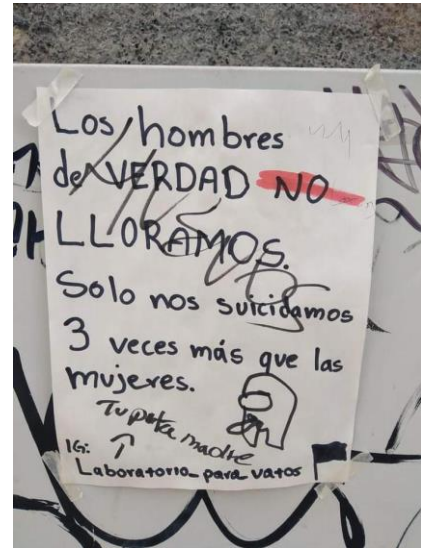 Los hombres
de VERDAD NO
LLORAMOS.
Solo nos suicidamos
3 veces más que las
mujeres.
Tu puta madre
IG: ↑
Laboratorio_para_vatos